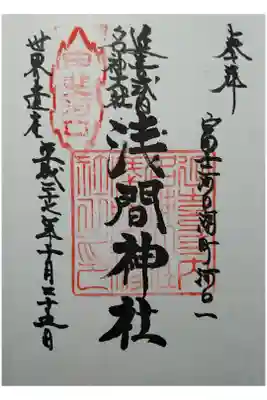 奉拝
富士河口湖町河口一
延喜式内
名神大社
浅間神社
甲斐河口
世界遺産
平成 年十月二十五日